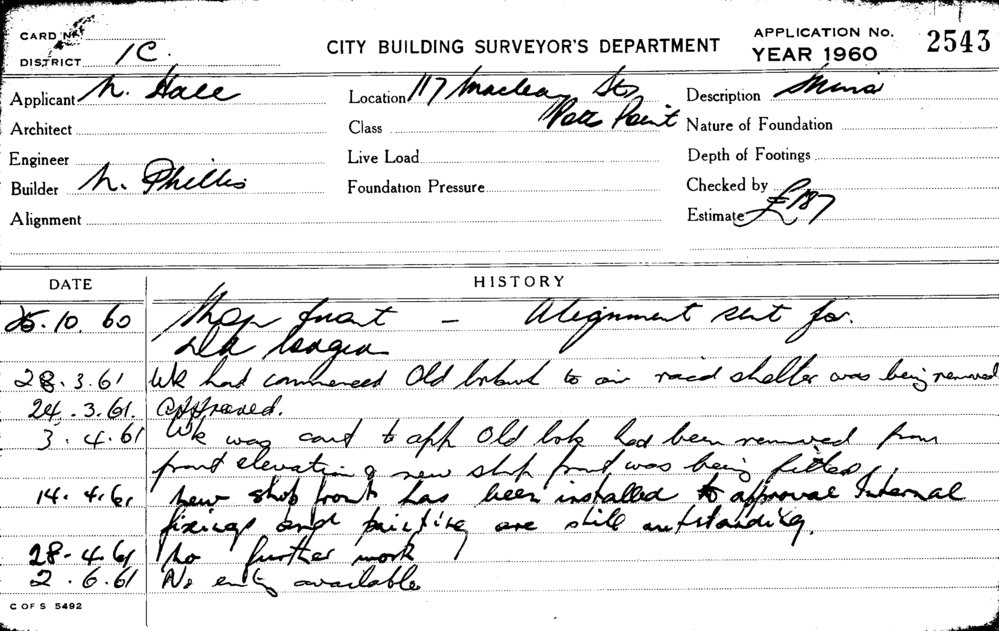 CARD No.
DISTRICT 1C.
CITY BUILDING SURVEYOR'S DEPARTMENT
APPLICATION No. 2543
YEAR 1960
Applicant N. Hall
Location 117 Macleay St
Potts Point
Description Minor
Architect
Class
Nature of Foundation
Engineer
Live Load
Depth of Footings
Builder N. Phillis
Foundation Pressure
Checked by
Alignment
Estimate £187
DATE HISTORY
25. 10. 60 Shop front — Alignment sent for.
28. 3. 61 Wk had commenced Old brkwk to air raid shelter was being removed
24. 3. 61. approved.
3. 4. 61 Wk was cont to app Old brk had been removed from
front elevation & new shop front was being fitted
14. 4. 61 New shop front has been installed to approval Internal
fixings and painting are still outstanding.
28. 4. 61 No further work
2. 6. 61 No entry available
C OF S 5492